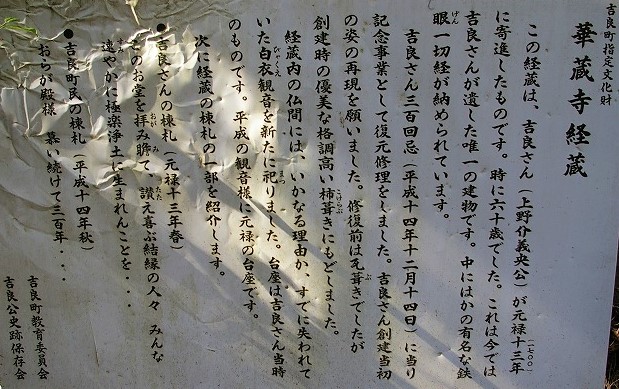 吉良町指定文化財
華蔵寺経蔵
この経蔵は、吉良さん（上野介義央公）が元禄十三年
一七〇〇
に寄進したものです。時に六十歳でした。これは今では
吉良さんが遺した唯一の建物です。中にはかの有名な鉄
げん
眼一切経が納められています。
吉良さん三百回忌（平成十四年十二月十四日）に当り
記念事業として復元修理をしました。吉良さん創建当初
の姿の再現を願いました。修復前は瓦葺きでしたが
ぶ
創建時の優美な格調高い柿葺きにもどしました。
こけらぶ
経蔵内の仏間には、いかなる理由か、すでに失われて
いた白衣観音を新たに祀りました。台座は吉良さん当時
びゃくえ
まつ
のものです。平成の観音様、元禄の台座です。
次に経蔵の棟札の一部を紹介します。
●吉良さんの棟札（元禄十三年春）
このお堂を拝み眸て、讃え喜ぶ結縁の人々 みんな
おい
み
たた
速やかに極楽浄土に生まれんことを・・・
●吉良町民の棟札（平成十四年秋）
おらが殿様 慕い続けて三百年・・・
吉良町教育委員会
吉良公史跡保存会